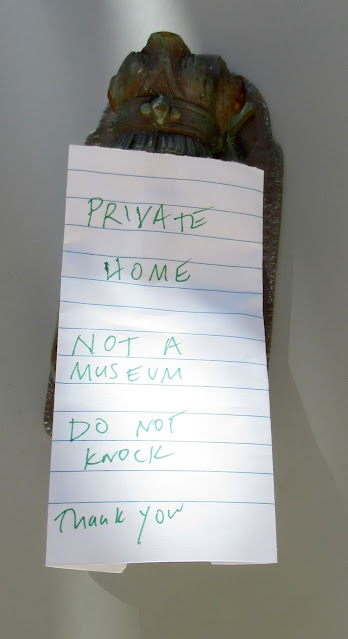 PRIVATE
HOME
NOT A
MUSEUM
DO NOT
KNOCK
Thank you